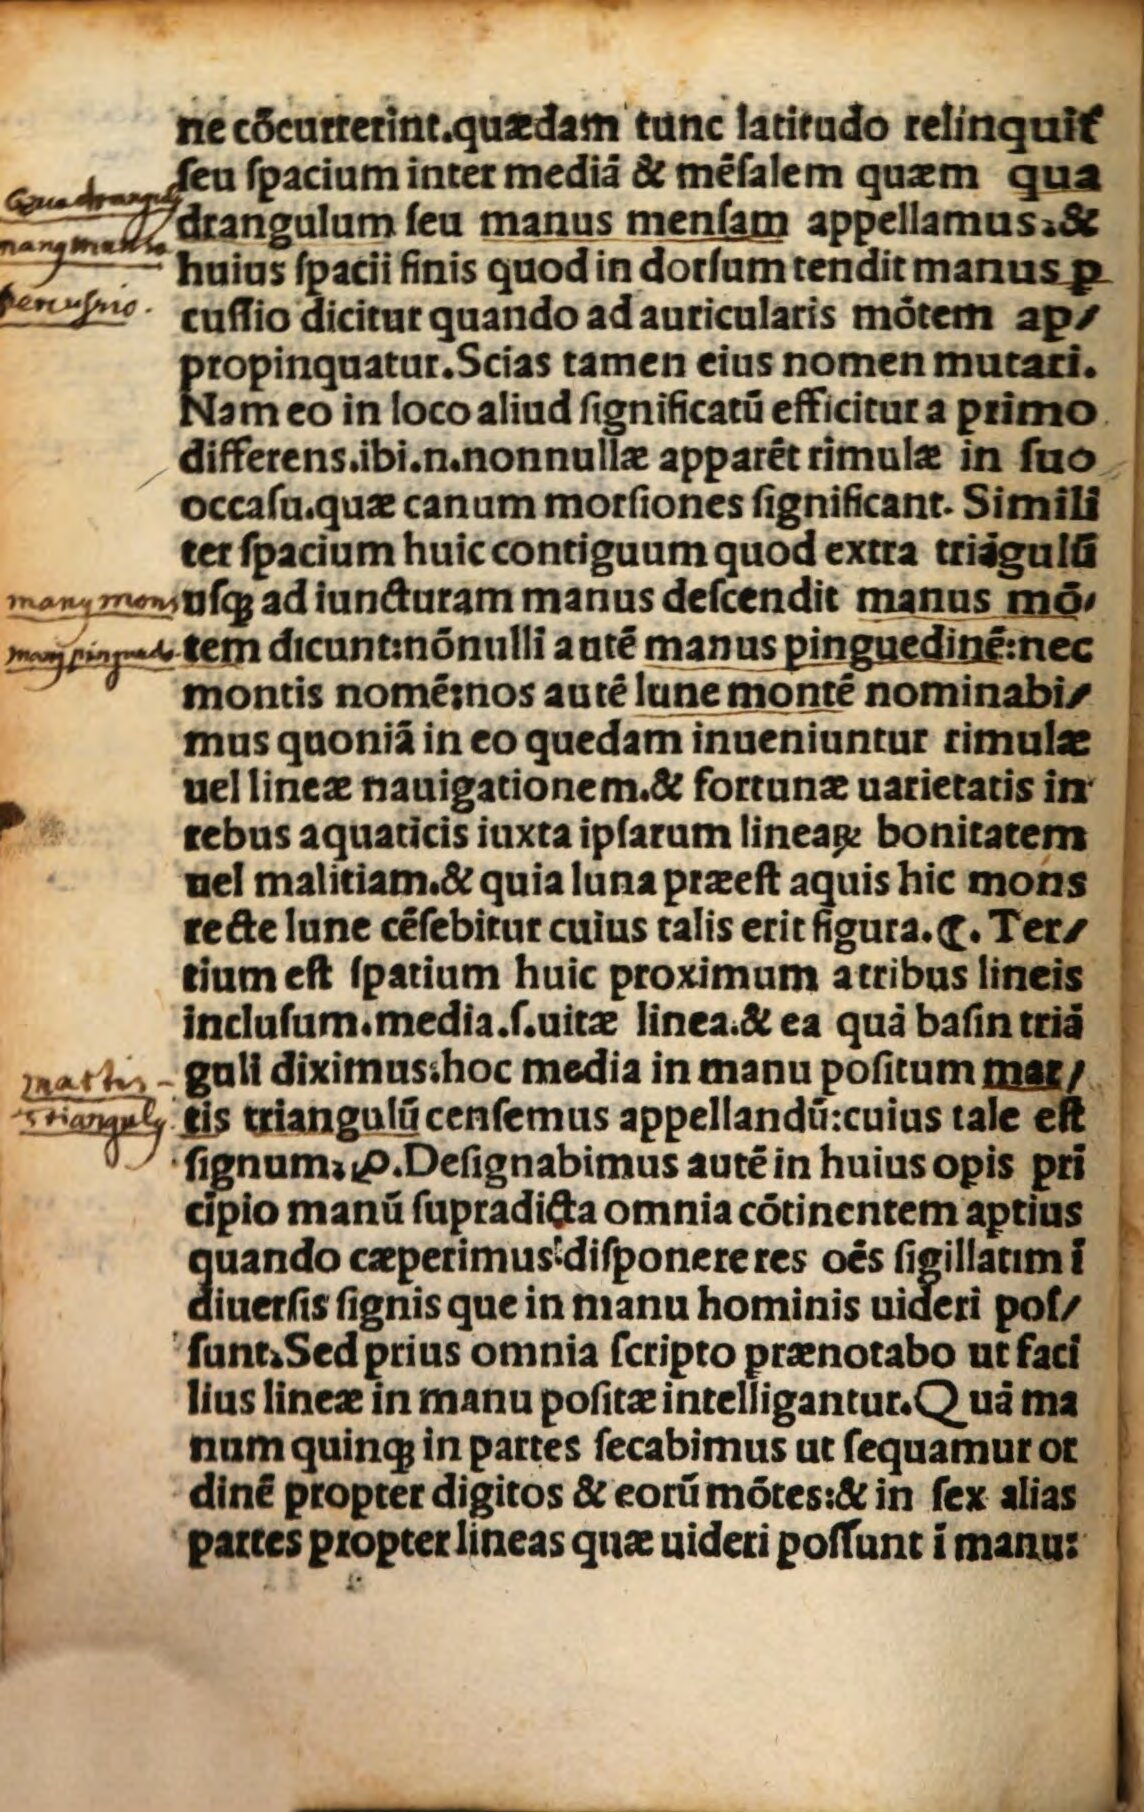 ne cõcurrerint.quædam tunc latitudo relinquit᷑
ſeu ſpacium inter mediã & mẽſalem quæm qua
Quadrangulꝰ
drangulum ſeu manus menſam appellamus:&
manꝰ mensa
huius ſpacii finis quod in dorſum tendit manus ꝑ
percussio.
cuſſio dicitur quando ad auricularis mõtem ap/
propinquatur.Scias tamen eius nomen mutari.
Nam eo in loco aliud ſignificatũ efficitur a primo
differens.ibi.n.nonnullæ apparẽt rimulæ in ſuo
occaſu.quæ canum morſiones ſignificant. Simili
ter ſpacium huic contiguum quod extra triãgulũ
manꝰ mons
uſqꝫ ad iuncturam manus deſcendit manus mõ/
manꝰ pinguedo
tem dicunt:nõnulli autẽ manus pinguedinẽ:nec
montis nomẽ:nos autẽ lune montẽ nominabi/
mus quoniã in eo quedam inueniuntur rimulæ
uel lineæ nauigationem.& fortunæ uarietatis in
rebus aquaticis iuxta ipſarum lineaꝝ bonitatem
uel malitiam.& quia luna præeſt aquis hic mons
recte lune cẽſebitur cuius talis erit figura.₵. Ter/
tium eſt ſpatium huic proximum a tribus lineis
incluſum.media.ſ.uitæ linea.& ea quã baſin triã
guli diximus:hoc media in manu poſitum mar/
martis
triangulꝰ
tis triangulũ cenſemus appellandũ:cuius tale eſt
ſignum:.Deſignabimus autẽ in huius opis pri
cipio manũ ſupradicta omnia cõtinentem aptius
quando cæperimus:diſponere res oẽs ſigillatim ĩ
diuerſis ſignis que in manu hominis uideri poſ/
ſunt.Sed prius omnia ſcripto prænotabo ut faci
lius lineæ in manu poſitæ intelligantur.Quã ma
num quinqꝫ in partes ſecabimus ut ſequamur or
dinẽ propter digitos & eorũ mõtes:& in ſex alias
partes propter lineas quæ uideri poſſunt ĩ manu: